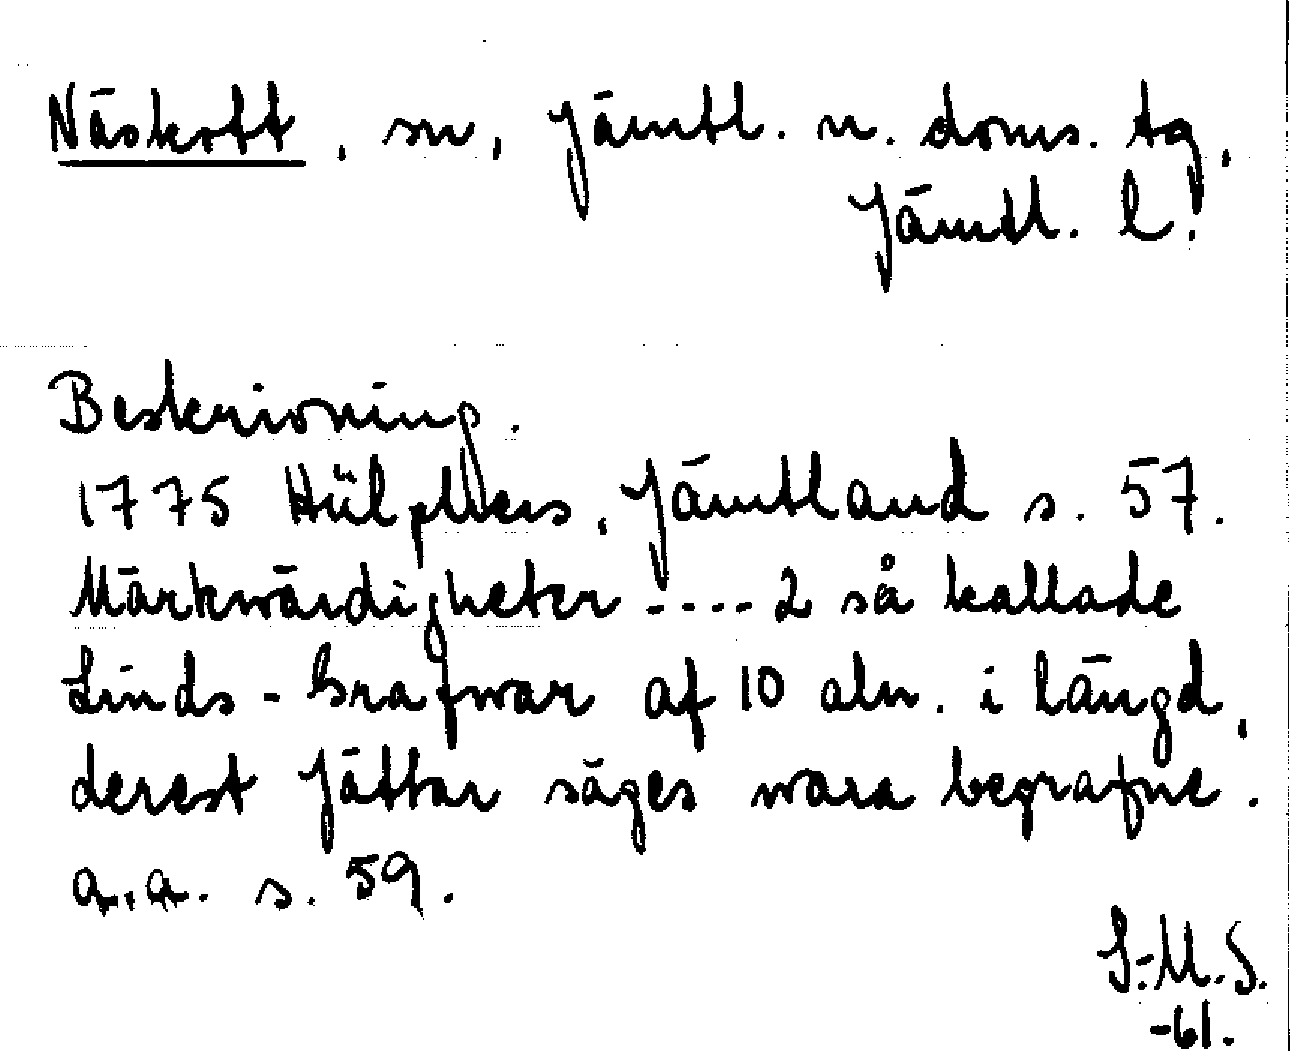 Näskott, sn, Jämtl. n. doms. tg,
Jämtl. l.
Beskrivning.
1775 Hülphers, Jämtland s. 57.
Märkwärdigheter ---- 2 så kallade
Linds-Grafwar af 10 aln. i längd,
derest Jättar säges wara begrafne.
a.a. s. 59.
S.-M.S.
-61.